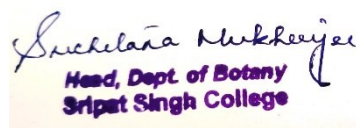 Suchetana Mukherjee
Head, Dept. of Botany
Sripat Singh College